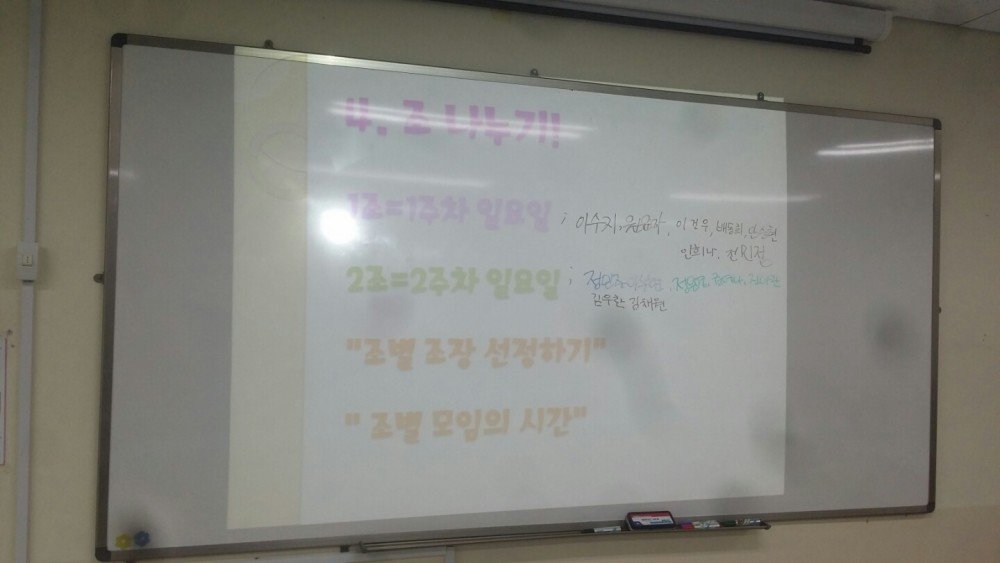 4. 조 나누기!
1조=1주차 일요일 ; 이수지, 이건우, 배동희, 안승현
인희나, 전
2조=2주차 일요일 ; 정민주
김우란 김채원
"조별 조장 선정하기"
" 조별 모임의 시간"